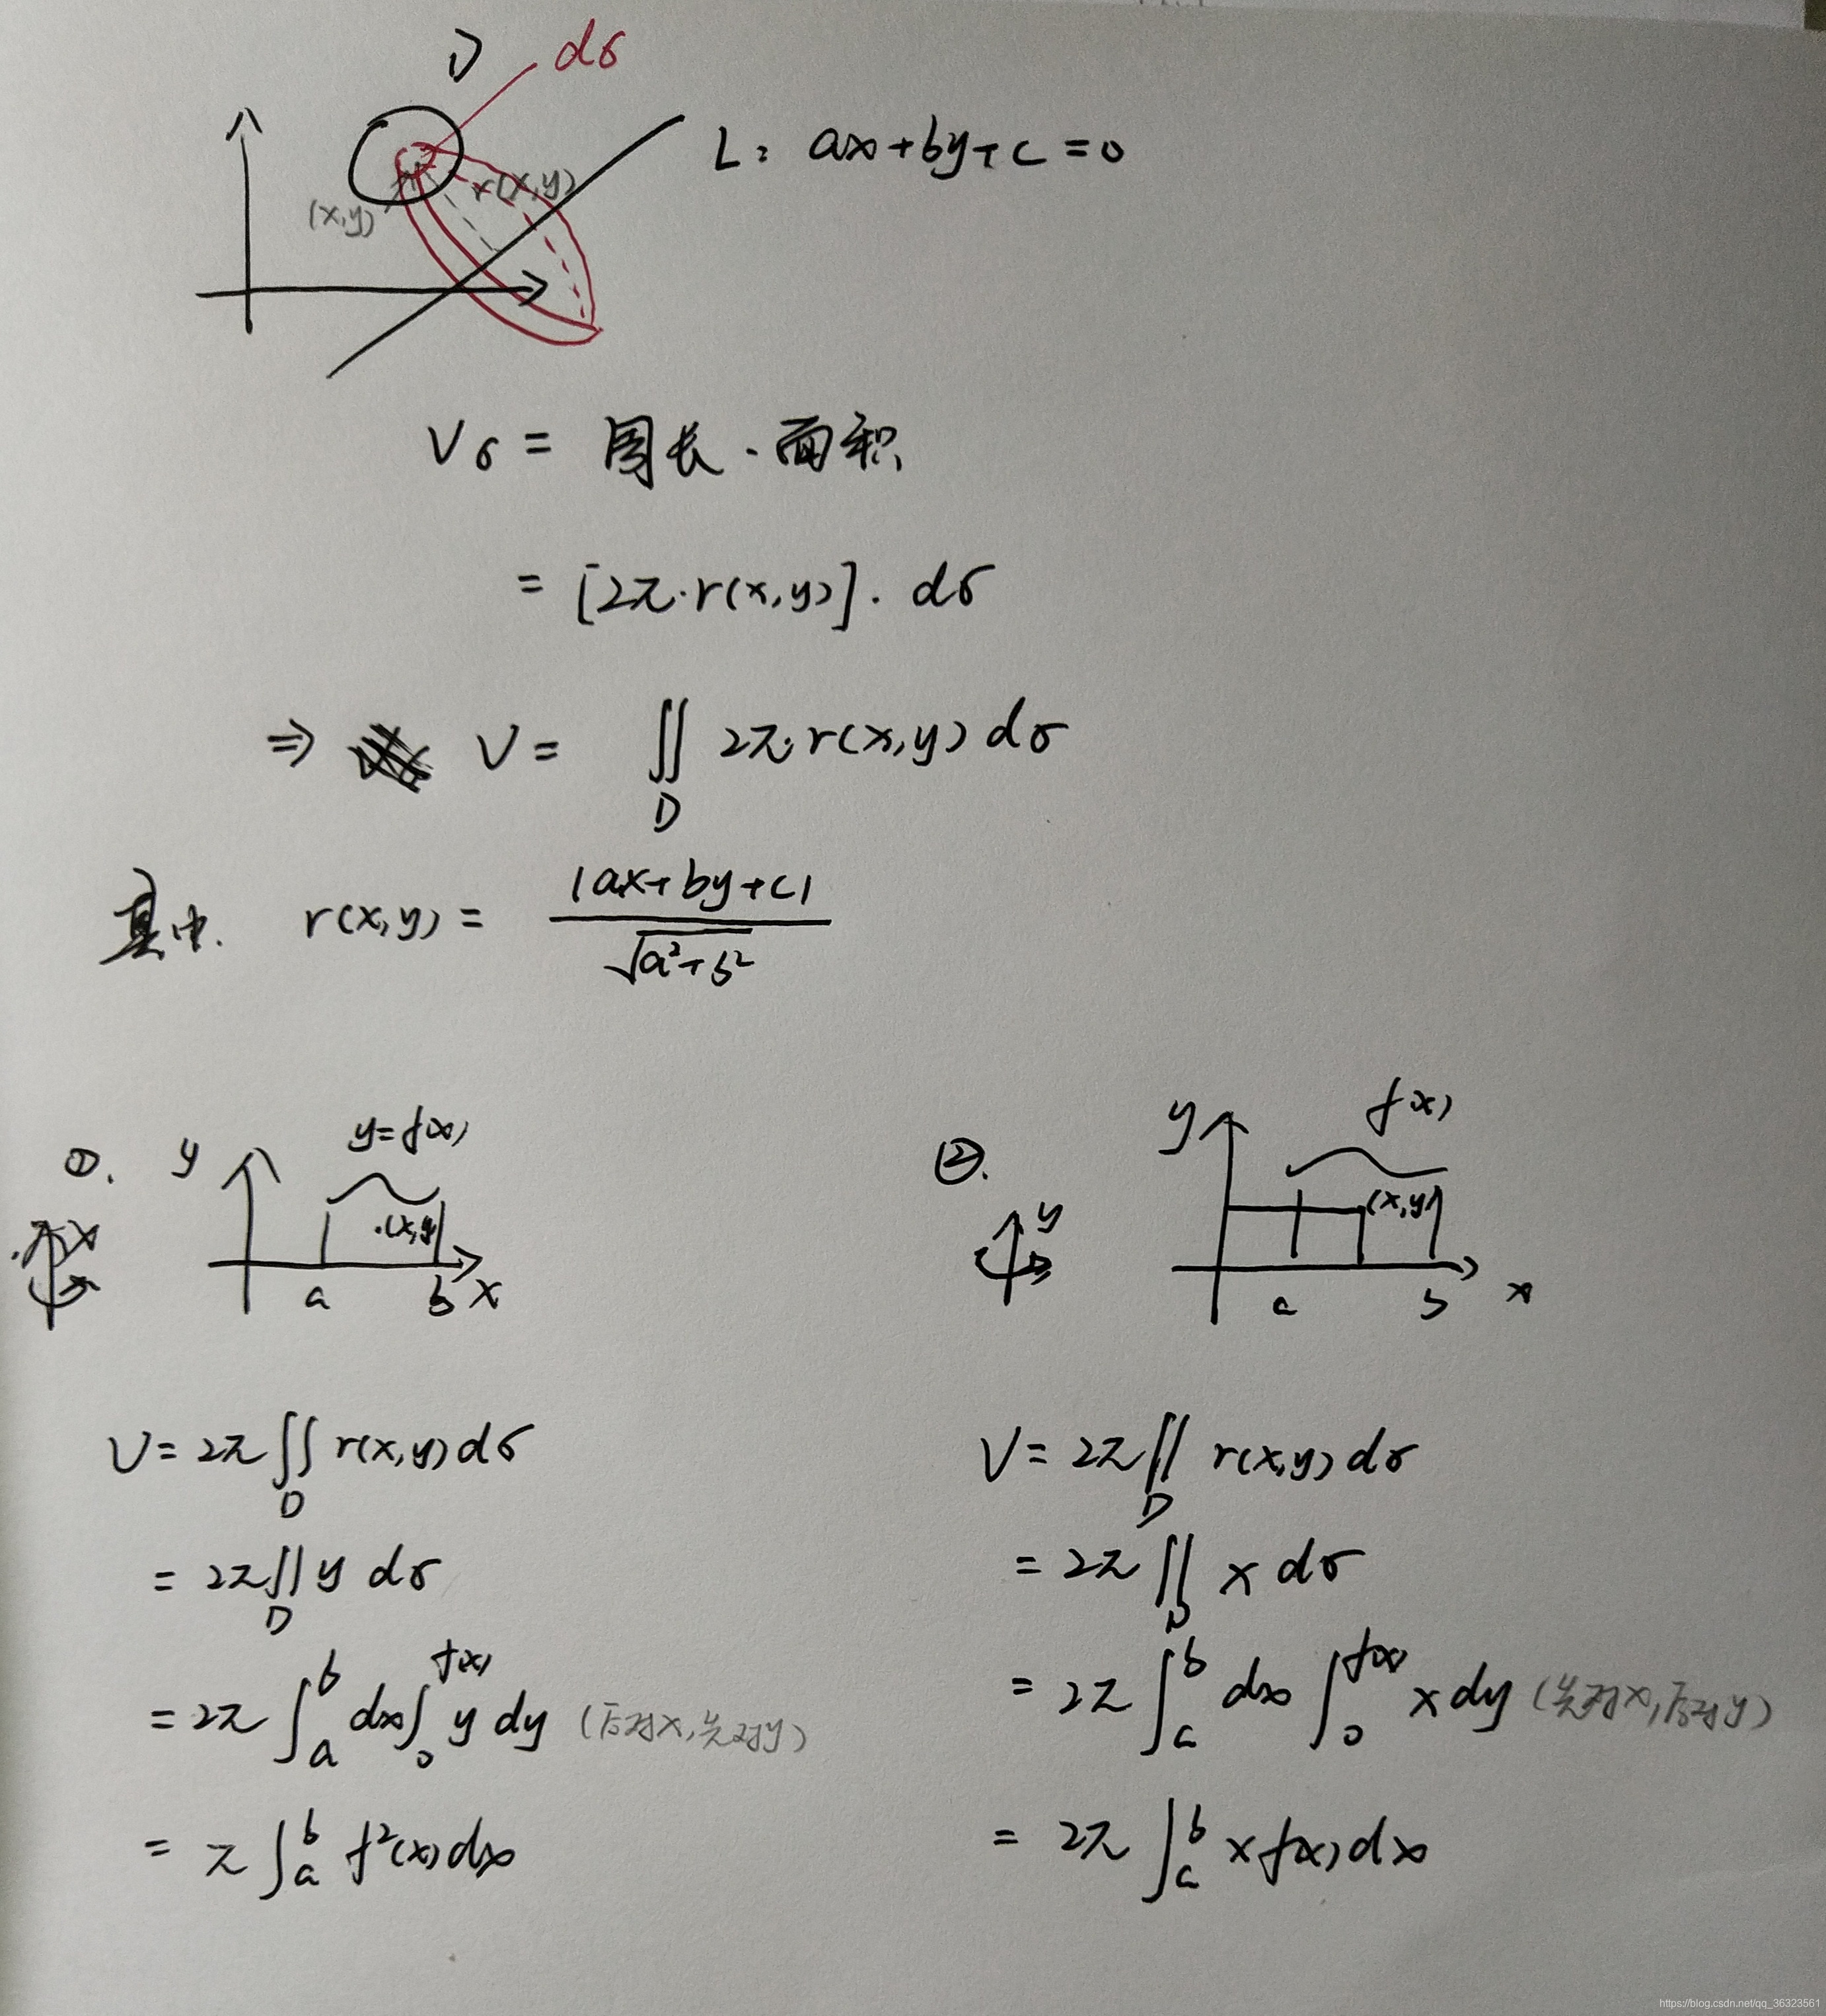 D dσ
L: ax+by+c=0
r(x,y)
(x,y)
Vσ = 周长·面积
= [2π·r(x,y)]·dσ
⇒ V = ∬_D 2π·r(x,y)dσ
其中. r(x,y) = |ax+by+c| / √(a²+b²)
①. y y=f(x)
.(x,y)
a b x
V = 2π∬_D r(x,y)dσ
= 2π∬_D y dσ
= 2π∫_a^b dx∫_0^f(x) y dy (后对x,先对y)
= π∫_a^b f²(x)dx
②. y f(x)
y (x,y)
a b x
V = 2π∬_D r(x,y)dσ
= 2π∬_D x dσ
= 2π∫_a^b dx∫_0^f(x) x dy (先对x,后对y)
= 2π∫_a^b x f(x)dx
https://blog.csdn.net/qq_36323561